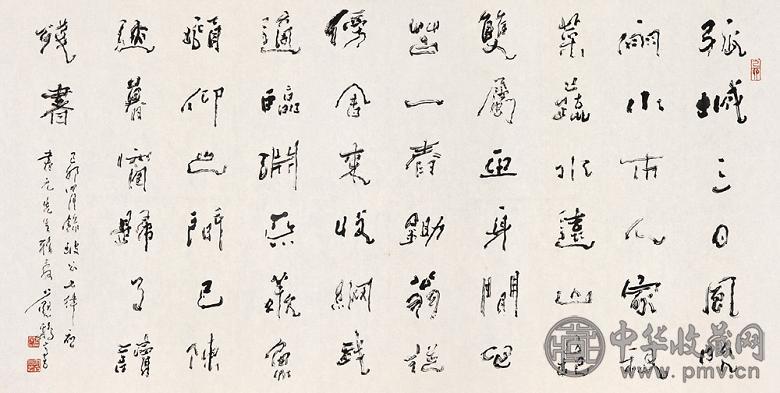 孤城三日風吹
雨小市人家秖
菜蔬水遠山長
雙屬玉身閒心
苦一舂鋤翁從
傍舍來收網我
適臨淵不羨魚
俛仰之間已陳
迹暮窗歸了讀
殘書
己卯四月錄坡公七律
先生雅
中华收藏网
www.pmv.cn